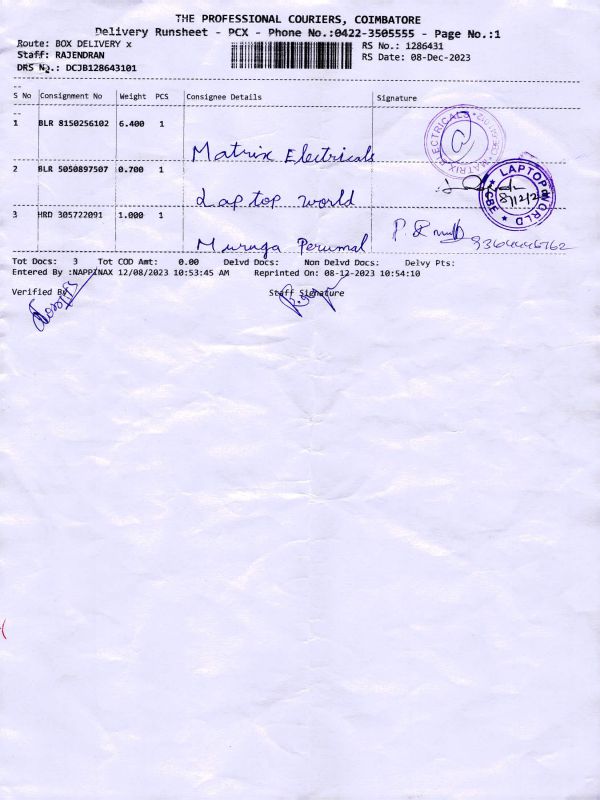 THE PROFESSIONAL COURIERS, COIMBATORE
Delivery Runsheet - PCX - Phone No.:0422-3505555 - Page No.:1
Route: BOX DELIVERY x
RS No.: 1286431
Staff: RAJENDRAN
RS Date: 08-Dec-2023
DRS No.: DCJB128643101
S No Consignment No Weight PCS Consignee Details Signature
1 BLR 8150256102 6.400 1
MATRIX ELECTRICALS
Matrix Electricals
2 BLR 5050897507 0.700 1
LAPTOP WORLD
Laptop world
3 HRD 305722091 1.000 1
Muruga Perumal
Tot Docs: 3 Tot COD Amt: 0.00 Delvd Docs: Non Delvd Docs: Delvy Pts:
Entered By :NAPPINAX 12/08/2023 10:53:45 AM Reprinted On: 08-12-2023 10:54:10
Verified By
Staff Signature